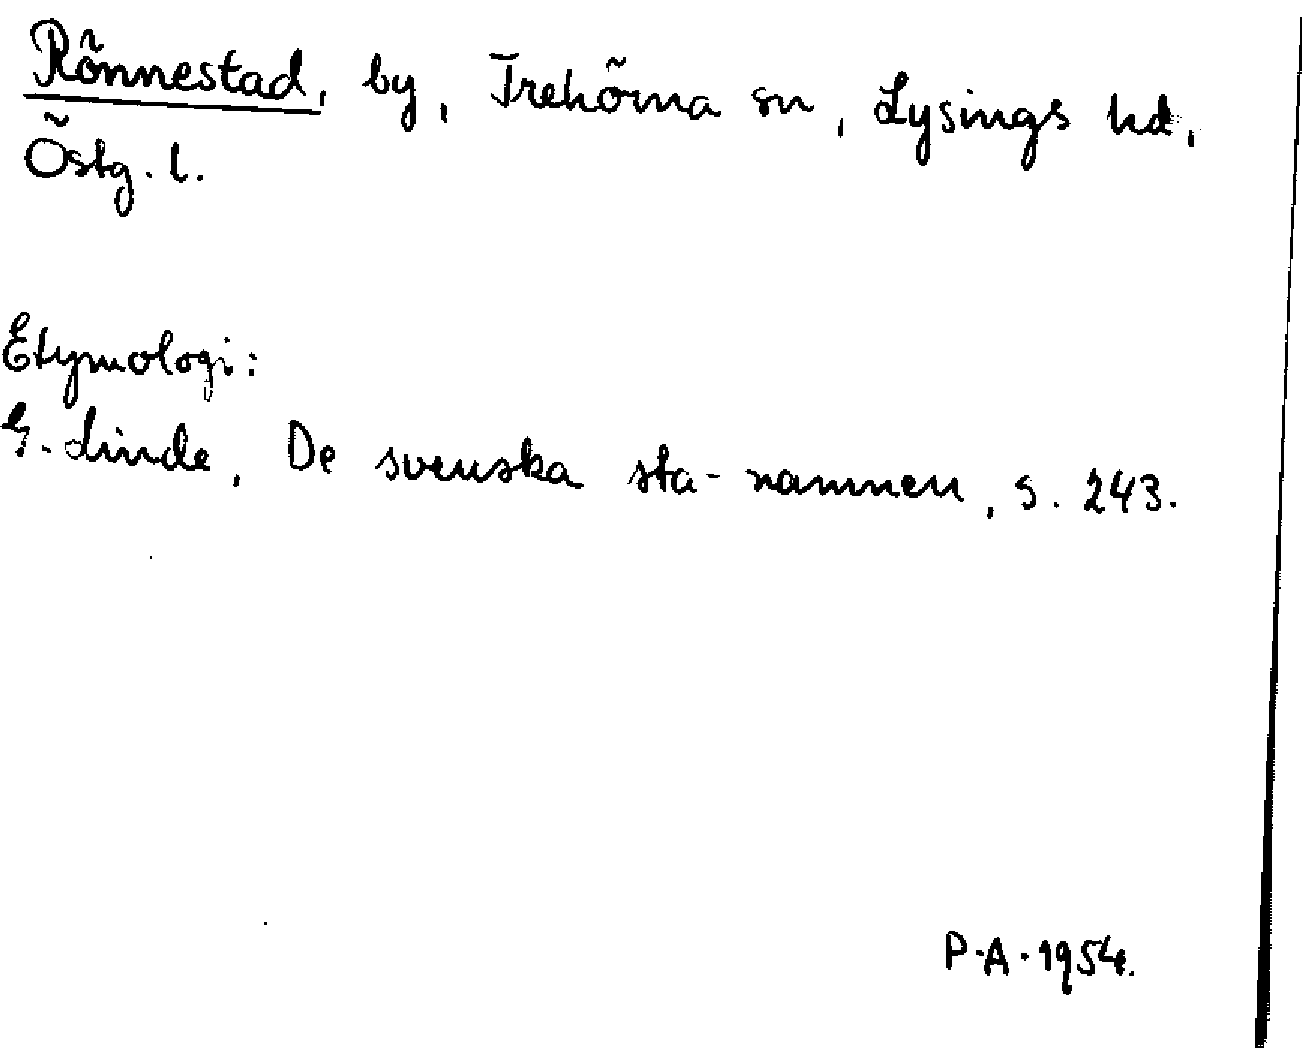 Rönnestad, by, Trehörna sn, Lysings hd,
Östg. l.
Etymologi:
G. Linde, De svenska sta-namnen, s. 243.
P.A. 1954.